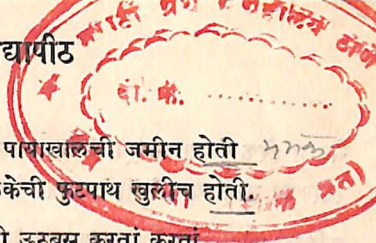 द्यापीठ
मराठी ग्रंथ संग्रहालय ठाणे
दा. क्र. ..................
पायाखालची जमीन होती
केची फुटपाथ खुलीच होती.
ी ऊठबस करतां करतां